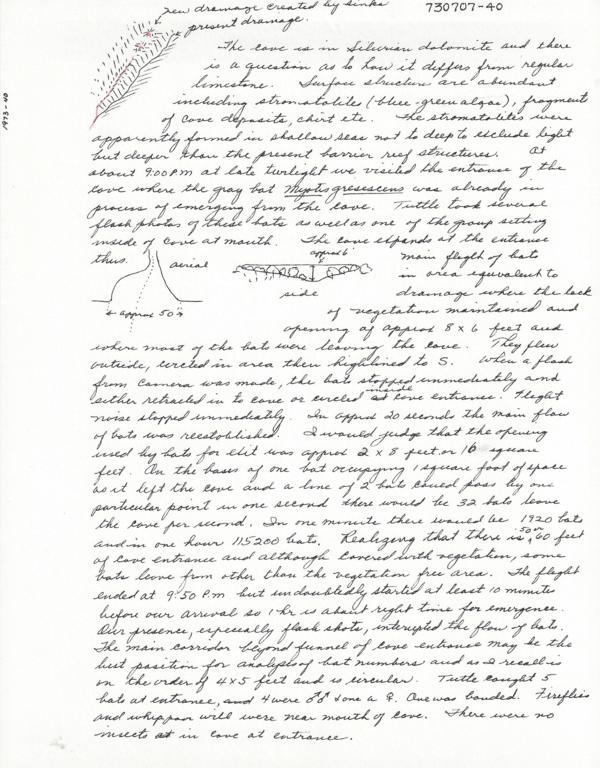 new drainage created by sinks
730707-40
present drainage.
1973-40
The cave is in Silurian dolomite and there
is a question as to how it differs from regular
limestone. Surface structure are abundant
including stromatolites (blue-green algae), fragment
of cave deposits, chirt etc. The stromatolites were
apparently formed in shallow seas not to deep to exclude light
but deeper than the present barrier reef structures. At
about 9:00 P.M at late twilight we visited the entrance of the
cave where the gray bat Myotis gresescens was already in
process of emerging from the cave. Tuttle took several
flash photos of these bats as well as one of the group sitting
inside of cave at mouth. The cave expands at the entrance
thus.
aerial
approx 6'
side
← approx 50' →
main flight of bats
in area equivalent to
drainage where the lack
of vegetation maintained and
opening of approx 8 x 6 feet and
where most of the bats were leaving the cave. They flew
outside, circled in area then highlined to S. When a flash
from camera was made, the bats stopped immediately and
either retracted in to cave or circled at inside cave entrance. Flight
noise stopped immediately. In approx 20 seconds the main flow
of bats was reestablished. I would judge that the opening
used by bats for exit was approx 2 x 8 feet or 16 square
feet. On the basis of one bat occupying 1 square foot of space
as it left the cave and a line of 2 bats could pass by one
particular point in one second there would be 32 bats leave
the cave per second. In one minute there would be 1920 bats
and in one hour 115200 bats. Realizing that there is 50 or 60 feet
of cave entrance and although covered with vegetation, some
bats leave from other than the vegetation free area. The flight
ended at 9:50 P.m but undoubtedly started at least 10 minutes
before our arrival so 1 hr is about right time for emergence.
Our presence, especially flash shots, interupted the flow of bats.
The main corridor beyond funnel of cave entrance may be the
best position for analyses of bat numbers and as I recall is
on the order of 4x5 feet and is circular. Tuttle caught 5
bats at entrance, and 4 were ♂♂ & one a ♀. One was banded. Fireflies
and whippoor will were near mouth of cave. There were no
insects at in cave at entrance.